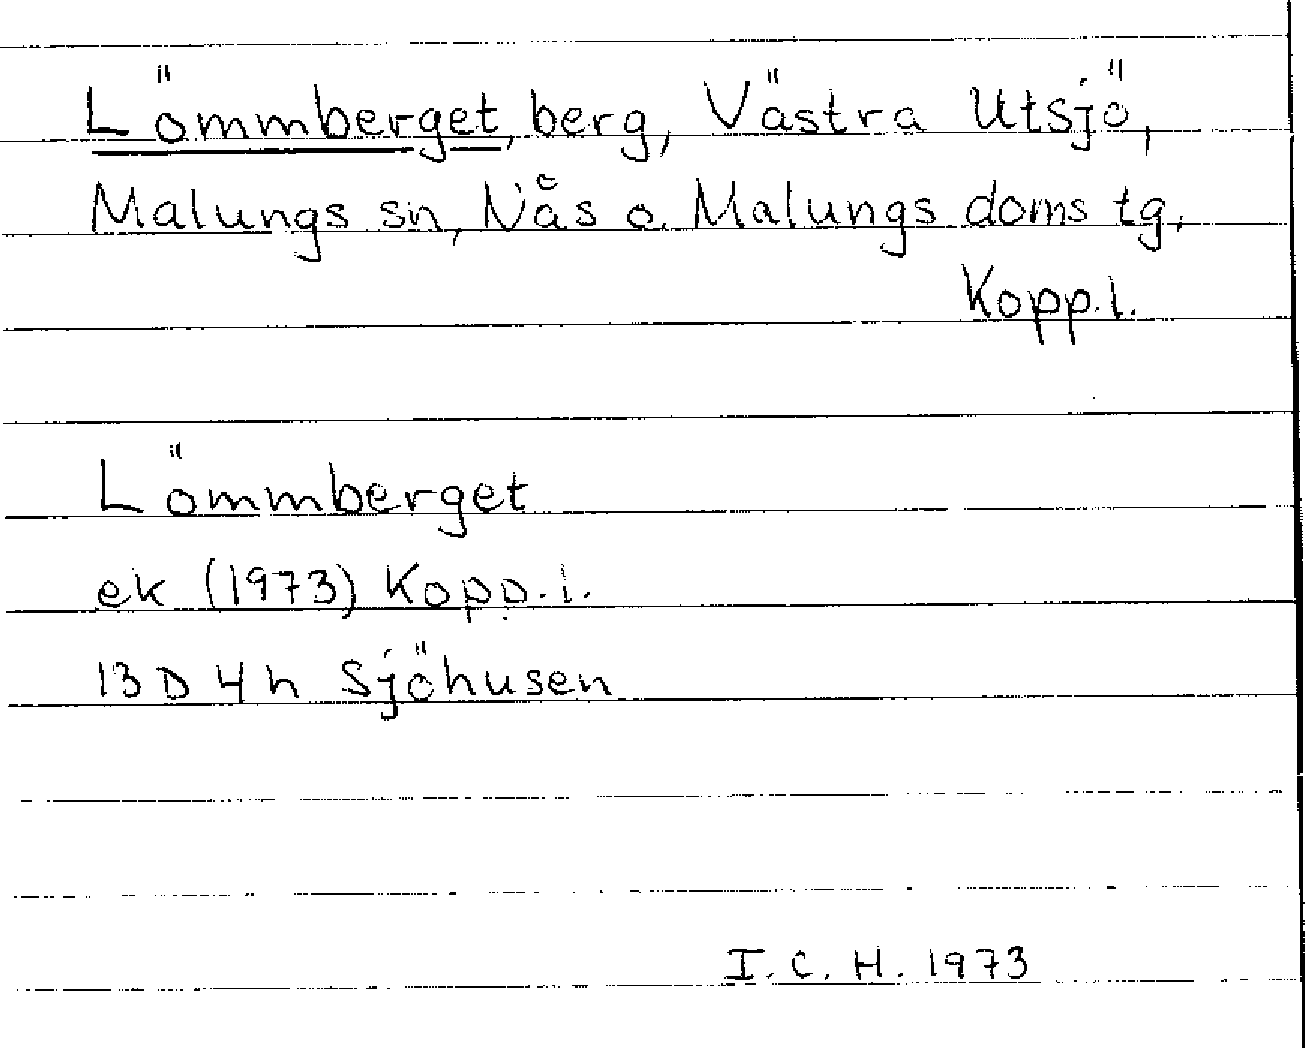 Lömmberget, berg, Västra Utsjö,
Malungs sn, Nås o. Malungs doms tg,
Kopp.l.
Lömmberget
ek (1973) Kopp.l.
13 D 4 h Sjöhusen
I. C. H. 1973